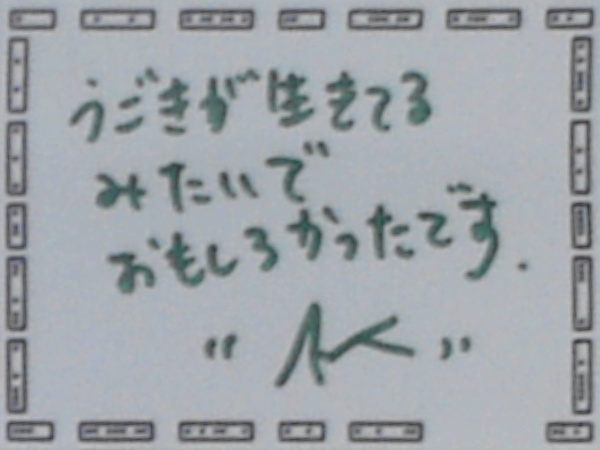 うごきが生きてる
みたいで
おもしろかったです.
"AK"